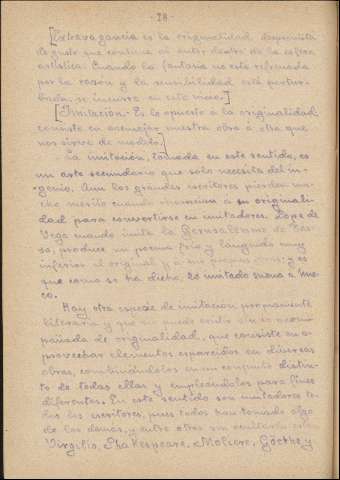 - 18 -
[Extravagancia es la originalidad desprovista
de gusto que contiene al autor dentro de la esfera
artística. Cuando la fantasía no está refrenada
por la razón y la sensibilidad está pertur-
bada, se incurre en este vicio.]
[Imitación. Es lo opuesto a la originalidad
consiste en asemejar nuestra obra a otra que
nos sirve de modelo.]
La imitación, tomada en este sentido, es
un arte secundario que sólo necesita del in-
genio. Aun los grandes escritores pierden mu-
cho mérito cuando renuncian a su originali-
dad para convertirse en imitadores. Lope de
Vega cuando imita la Jerusalemme de Tas-
so, produce un poema frío y lánguido muy
inferior al original y a sus propias obras; y es
que como se ha dicho, lo imitado suena a hue-
co.
Hay otra especie de imitación propiamente
literaria y que no puede existir sin ir acom-
pañada de originalidad, que consiste en a-
provechar elementos esparcidos en diversas
obras, combinándolos en un conjunto distin-
to de todas ellas y empleándolos para fines
diferentes. En este sentido son imitadores to-
dos los escritores, pues todos han tomado algo
de los demás, y entre otros sin ocultarlo
Virgilio, Shakespeare, Moliere, Göethe y